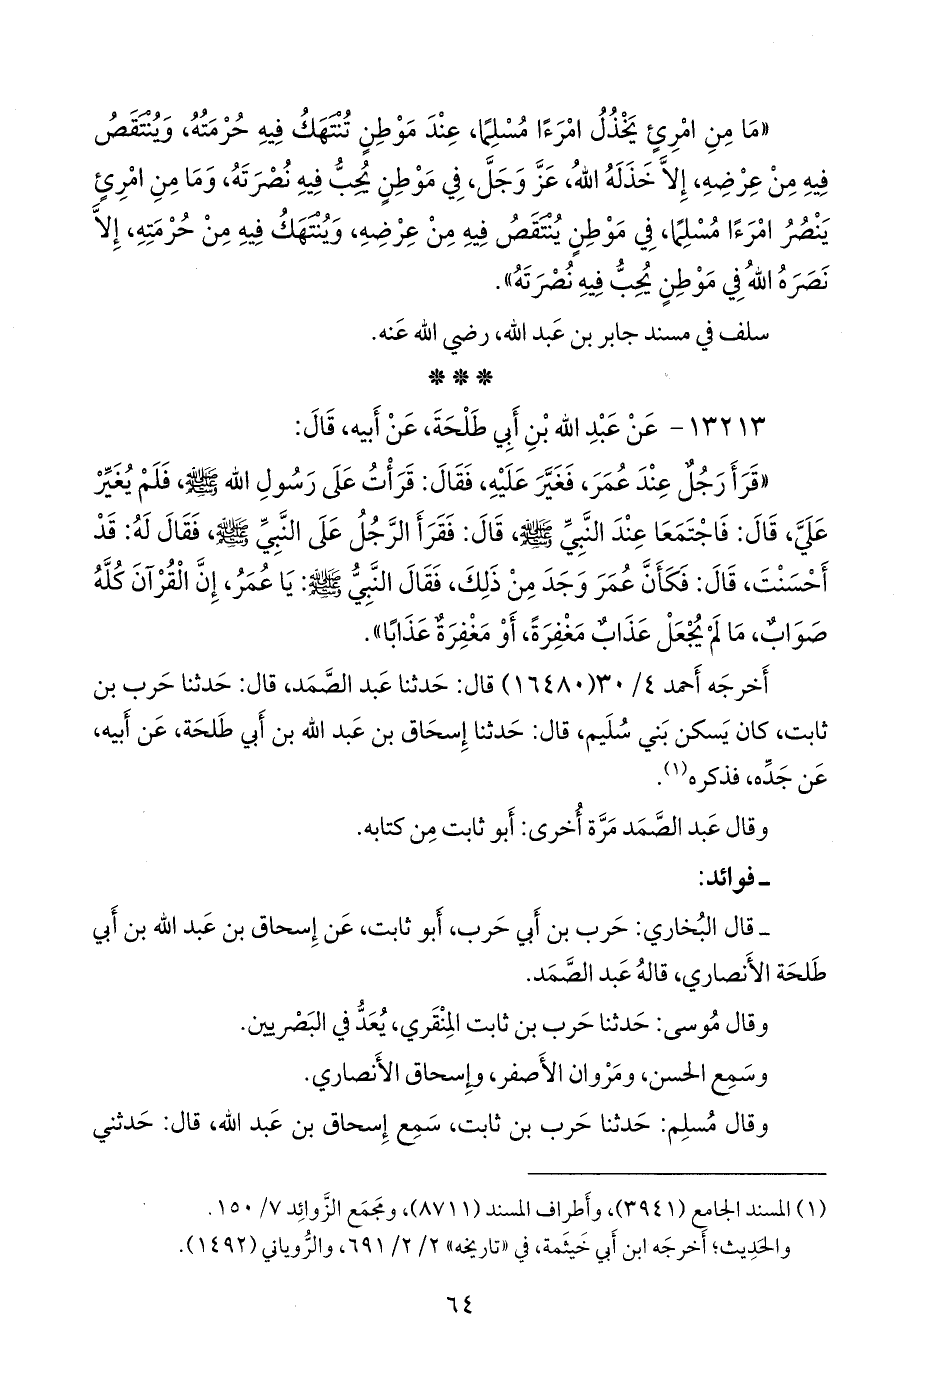 «مَا مِنِ امْرِئٍ يَخْذُلُ امْرَءًا مُسْلِمًا، عِنْدَ مَوْطِنٍ تُنْتَهَكُ فِيهِ حُرْمَتُهُ، وَيُنْتَقَصُ
فِيهِ مِنْ عِرْضِهِ، إِلاَّ خَذَلَهُ اللهُ، عَزَّ وَجَلَّ، فِي مَوْطِنٍ يُحِبُّ فِيهِ نُصْرَتَهُ، وَمَا مِنِ امْرِئٍ
يَنْصُرُ امْرَءًا مُسْلِمًا، فِي مَوْطِنٍ يُنْتَقَصُ فِيهِ مِنْ عِرْضِهِ، وَيُنْتَهَكُ فِيهِ مِنْ حُرْمَتِهِ، إِلاَّ
نَصَرَهُ اللهُ فِي مَوْطِنٍ يُحِبُّ فِيهِ نُصْرَتَهُ».
سلف في مسند جابر بن عَبد الله، رضي الله عَنه.
* * *
١٣٢١٣- عَنْ عَبْدِ اللهِ بْنِ أَبِي طَلْحَةَ، عَنْ أَبِيهِ، قَالَ:
«قَرَأَ رَجُلٌ عِنْدَ عُمَرَ، فَغَيَّرَ عَلَيْهِ، فَقَالَ: قَرَأْتُ عَلَى رَسُولِ اللهِ ﷺ، فَلَمْ يُغَيِّرْ
عَلَيَّ، قَالَ: فَاجْتَمَعَا عِنْدَ النَّبِيِّ ﷺ، قَالَ: فَقَرَأَ الرَّجُلُ عَلَى النَّبِيِّ ﷺ، فَقَالَ لَهُ: قَدْ
أَحْسَنْتَ، قَالَ: فَكَأَنَّ عُمَرَ وَجَدَ مِنْ ذَلِكَ، فَقَالَ النَّبِيُّ ﷺ: يَا عُمَرُ، إِنَّ الْقُرْآنَ كُلَّهُ
صَوَابٌ، مَا لَمْ يُجْعَلْ عَذَابٌ مَغْفِرَةً، أَوْ مَغْفِرَةٌ عَذَابًا».
أَخرجَه أَحمد ٤/ ٣٠(١٦٤٨٠) قال: حَدثنا عَبد الصَّمَد، قال: حَدثنا حَرب بن
ثابت، كان يَسكن بَني سُلَيم، قال: حَدثنا إِسحَاق بن عَبد الله بن أَبي طَلحَة، عَن أَبيه،
عَن جَدِّه، فذكره(١).
وقال عَبد الصَّمَد مَرَّة أُخرى: أَبو ثابت مِن كتابه.
ـ فوائد:
ـ قال البُخاري: حَرب بن أَبي حَرب، أَبو ثابت، عَن إِسحاق بن عَبد الله بن أَبي
طَلحَة الأَنصاري، قالهُ عَبد الصَّمَد.
وقال مُوسى: حَدثنا حَرب بن ثابت المِنْقَري، يُعَدُّ في البَصْريين.
وسَمِع الحسن، ومَرْوان الأَصفر، وإِسحاق الأَنصاري.
وقال مُسلِم: حَدثنا حَرب بن ثابت، سَمِع إِسحاق بن عَبد الله، قال: حَدثني
(١) المسند الجامع (٣٩٤١)، وأَطراف المسند (٨٧١١)، ومَجمَع الزَّوائِد ٧/ ١٥٠.
والحَدِيث؛ أَخرجَه ابن أَبي خَيثَمة، في «تاريخه» ٢/ ٢/ ٦٩١، والرُّوياني (١٤٩٢).
٦٤